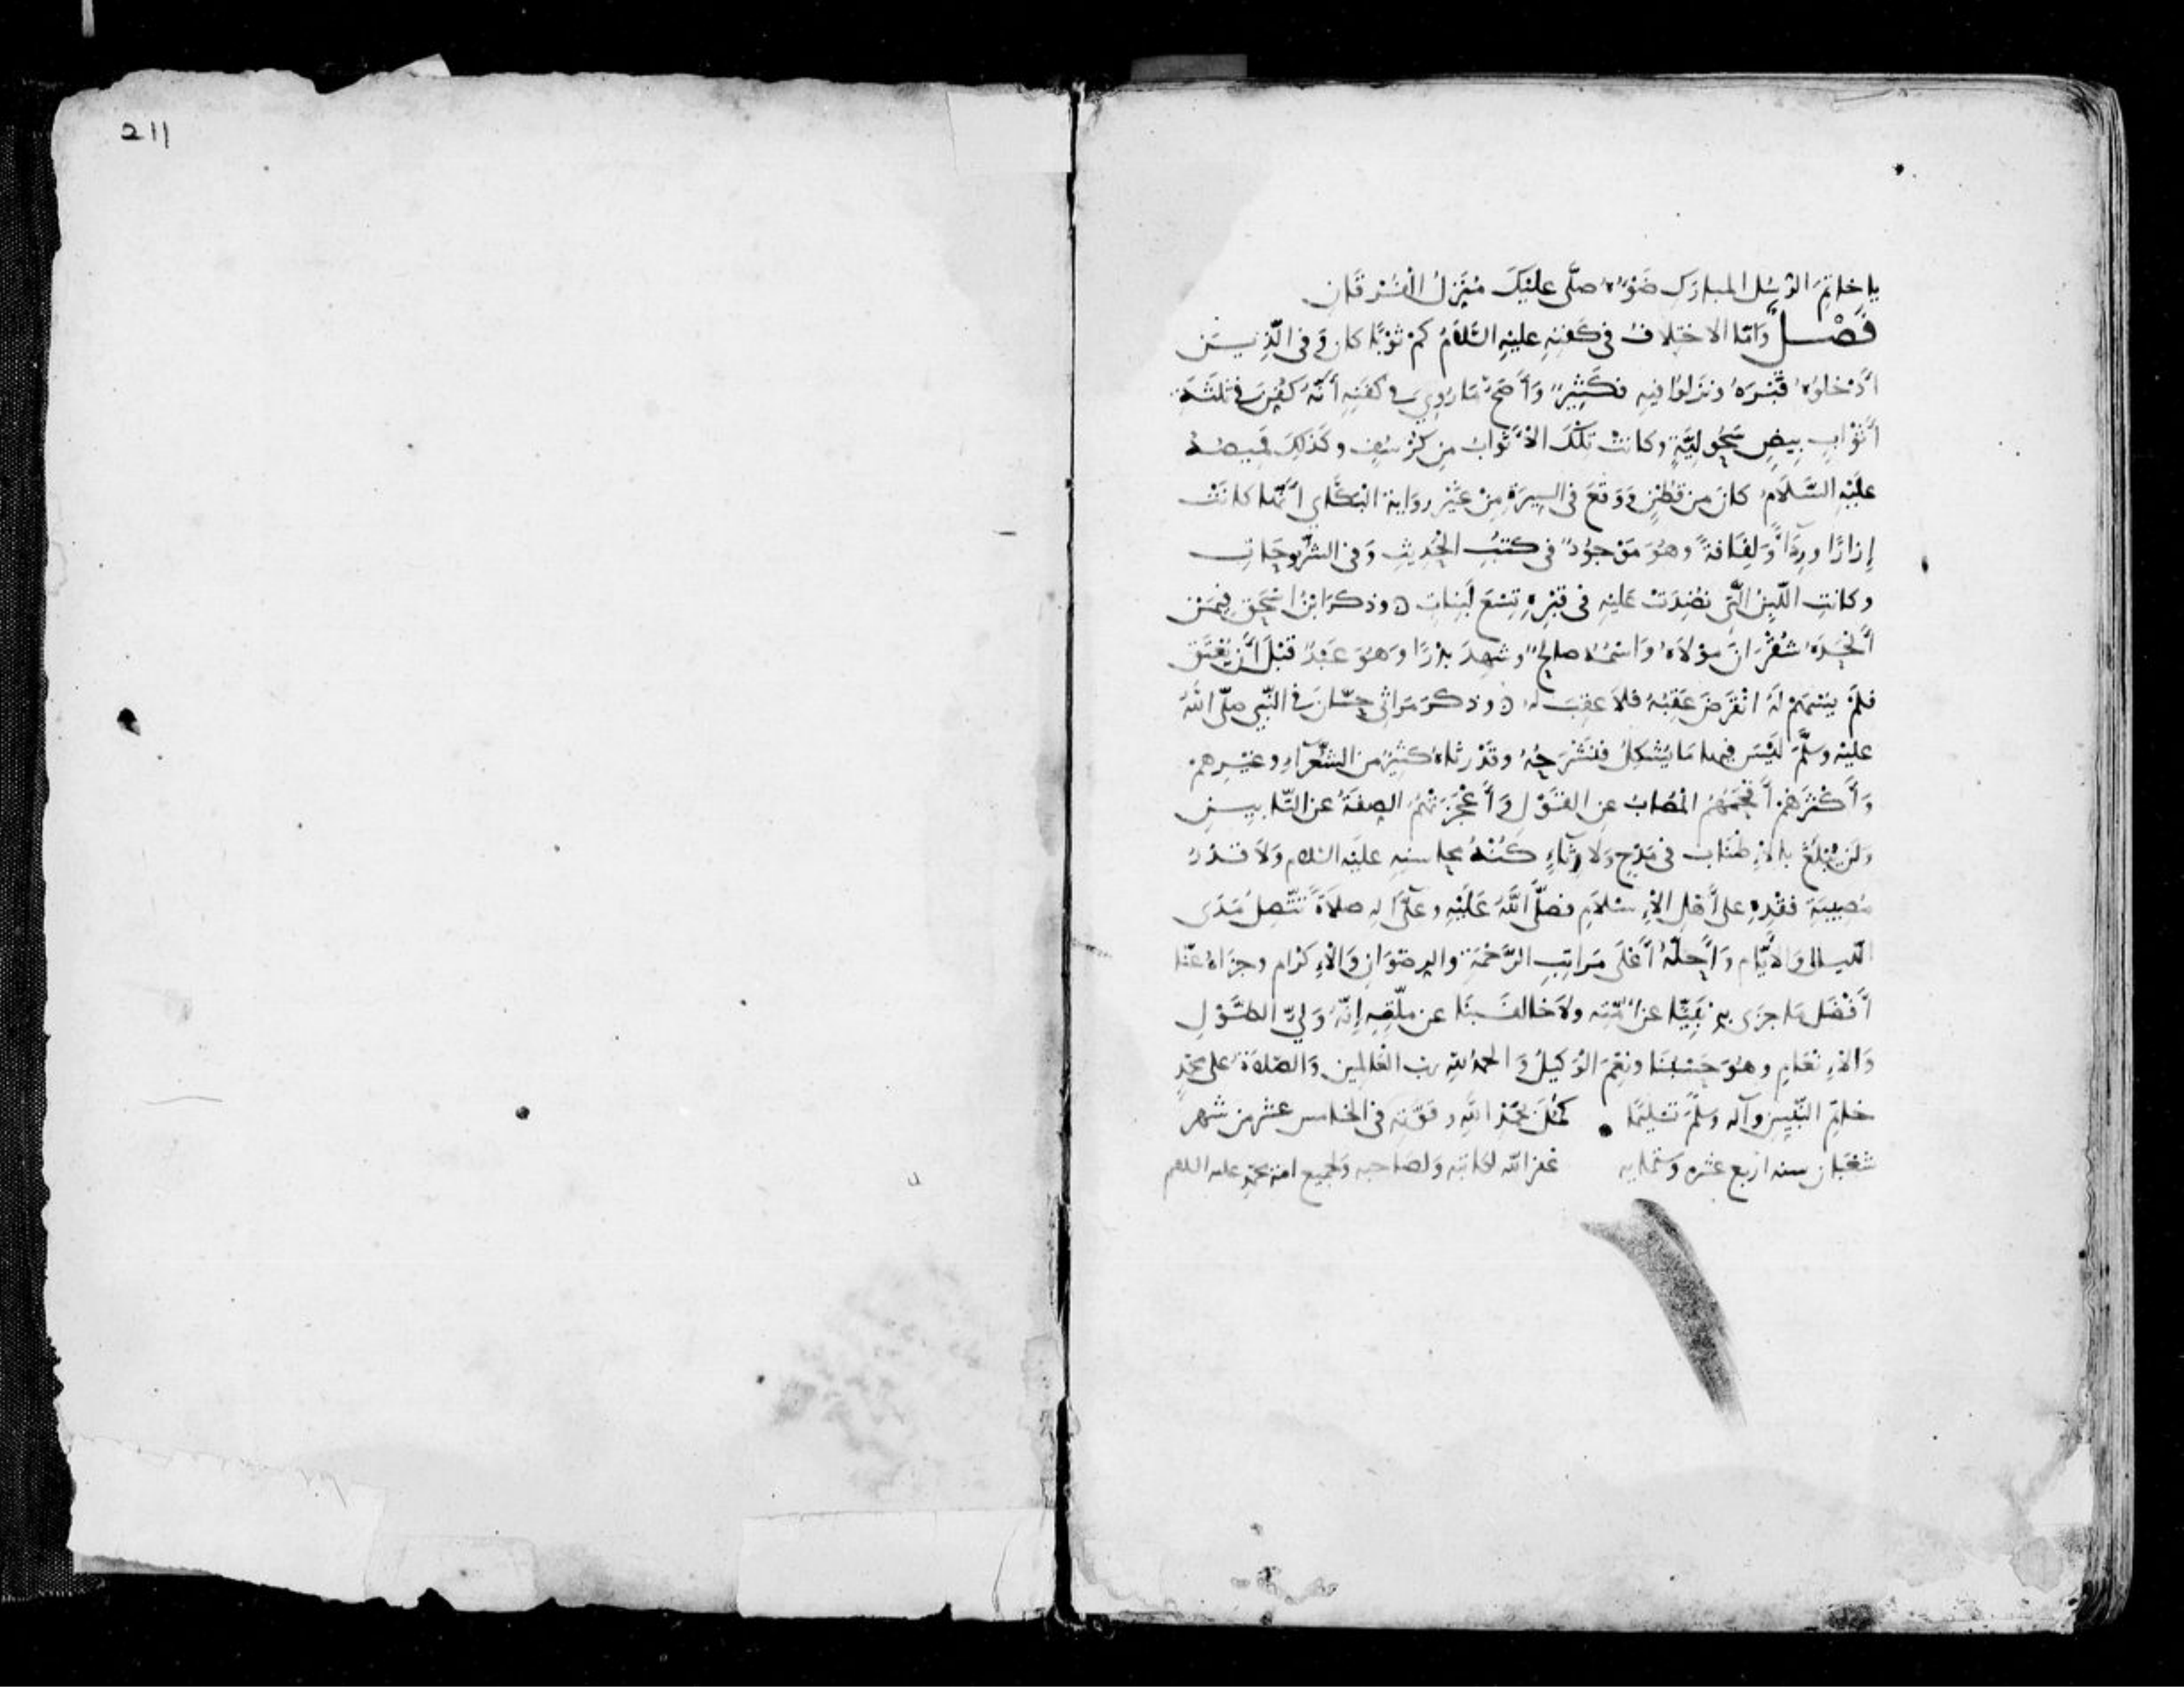 211
يا خاتِمَ الرُّسُلِ المبارَكِ ضَوْءُهُ صلَّى عليْكَ مُنَزِّلُ الفُرْقَانِ
فَصْلٌ وَأمّا الاختِلافُ في كَفَنِهِ عليْهِ السَّلَامُ كمْ ثَوْبًا كان وَفي الَّذِيـنَ
أَدْخلوُهُ قَبْرَهُ ونَزَلوُا فيهِ فكَثِيرٌ وَأَصَحُّ مَا رُوِيَ في كفَنِهِ أَنَّهُ كُفِّنَ في ثلثَةِ
أَثْوَابٍ بِيضٍ سَحُولِيَّةٍ وكانتْ تِلْكَ الأَثوابُ مِن كُرْسُفٍ وكَذلِكَ قَمِيصُهُ
علَيْهِ السَّلَامُ كانَ مِن قُطْنٍ وَوَقَعَ في السِيرَةِ مِنْ غَيْرِ روَايةِ البَكَّايِ أَنَّها كانَتْ
إِزارًا ورِدَآءً وَلِفَافةً وهُوَ مَوْجُودٌ في كتبِ الحَدِيثِ وَفي الشُّروُحَاتِ
وكانتِ اللَّبِنُ الَّتِي نُضِدَتْ عَليْهِ في قَبْرِهِ تِسْعَ لَبِنَاتٍ ٥ وذكرَ ابْنُ اسْحَقَ فِيمَنْ
أَلْحَدَهُ شُقْرَانَ مَوْلَاهُ وَاسْمُهُ صالِحٌ وشَهِدَ بدْرًا وَهُوَ عَبْدٌ قبْلَ أَنْ يُعْتَقَ
فلَمْ يُسْهَمْ لَهُ انْقَرَضَ عَقِبُهُ فلَا عَقِبَ لهُ ٥ وذكَرَ مَرَاثِي حسَّانَ في النَّبِي صلّى اللهُ
عليْهِ وسلَّمَ لَيْسَ فيها مَا يُشْكِلُ فنَشْرَحُهُ وقَدْ رثاهُ كثِيرٌ من الشُّعَرَآءِ وغيْـرِهمْ
وَأَكْثرَهُمْ أَفْحَمَهُمُ المُصَابُ عنِ القَوْلِ وَأَعْجَزَتْهُمُ الصِفَةُ عن التَّابِيـنِ
وَلَنْ يُبْلَغَ بالإِطْنَابِ في مَدْحٍ وَلَا رِثَآءٍ كُنْهُ محاسِنِهِ عليْهِ السَّلام وَلَا قَدْرُ
مُصِيبَةِ فقْدِهِ على أَهْلِ الإِسْلَامِ فصَلَّى اللَّهُ عَلَيْهِ وعلَى آلِهِ صلَاةً تتَّصِلُ مَدَى
اللَّيالي وَالأَيَّامِ وَأَحَلَّهُ أَعْلَى مَراتِبِ الرَّحْمَةِ والرِضوَانِ وَالإِكْرَامِ وجزَاهُ عَنَّا
أَفْضَلَ مَا جزَى بِهِ نَبِيًّا عن أُمَّتِهِ ولَا خالفَ بنَا عن ملّتِهِ إِنَّهُ وَليُّ الطَّوْلِ
وَالإِنْعَامِ وهُوَ حَسْبُنَا ونِعْمَ الوَكيلُ وَالحمْدُ للهِ ربِّ العَالمِين وَالصَّلاةُ على محمَّدٍ
خاتَمِ النَّبِيِّينَ وآلهِ وَسلَّمَ تسْلِيمًا • كَمُلَ بحَمْدِ اللَّهِ وقوَّتِه في الخامس عشر من شهر
شَعْبَان سنه أرْبع عشره وستمايه غفر الله لكاتبِه وَلصَاحبِه وَلجميع امة محمَّدٍ عليه السلام